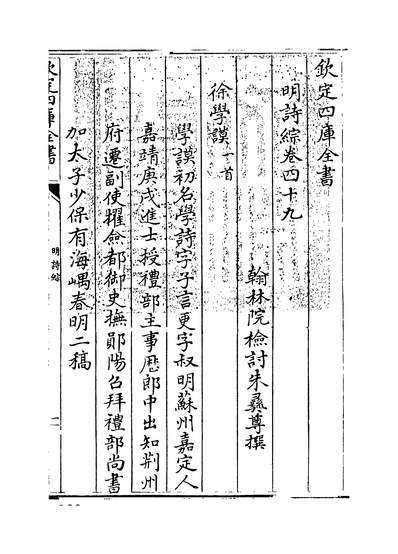 欽定四庫全書
明詩綜卷四十九
翰林院檢討朱彝尊撰
徐學謨一首
學謨初名學詩字子言更字叔明蘇州嘉定人
嘉靖庚戌進士授禮部主事歴郎中出知荆州
府遷副使擢僉都御史撫鄖陽召拜禮部尚書
加太子少保有海嵎春明二稿
欽定四庫全書
明詩綜